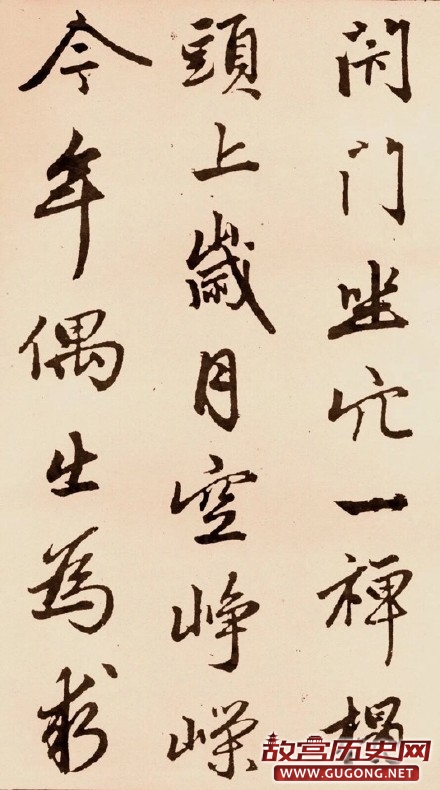 閇門坐穴一禅榻
頭上歲月空崢嶸
今年偶出為求
故宫历史网
WWW.GUGONG.NET